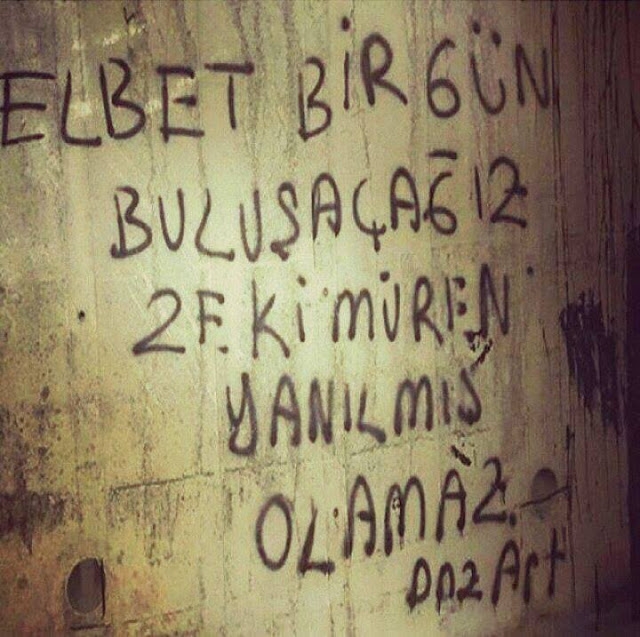 ELBET BİR GÜN
BULUŞAÇAĞIZ
ZEKİ MÜREN
YANILMIŞ
OLAMAZ.
DPZ Art